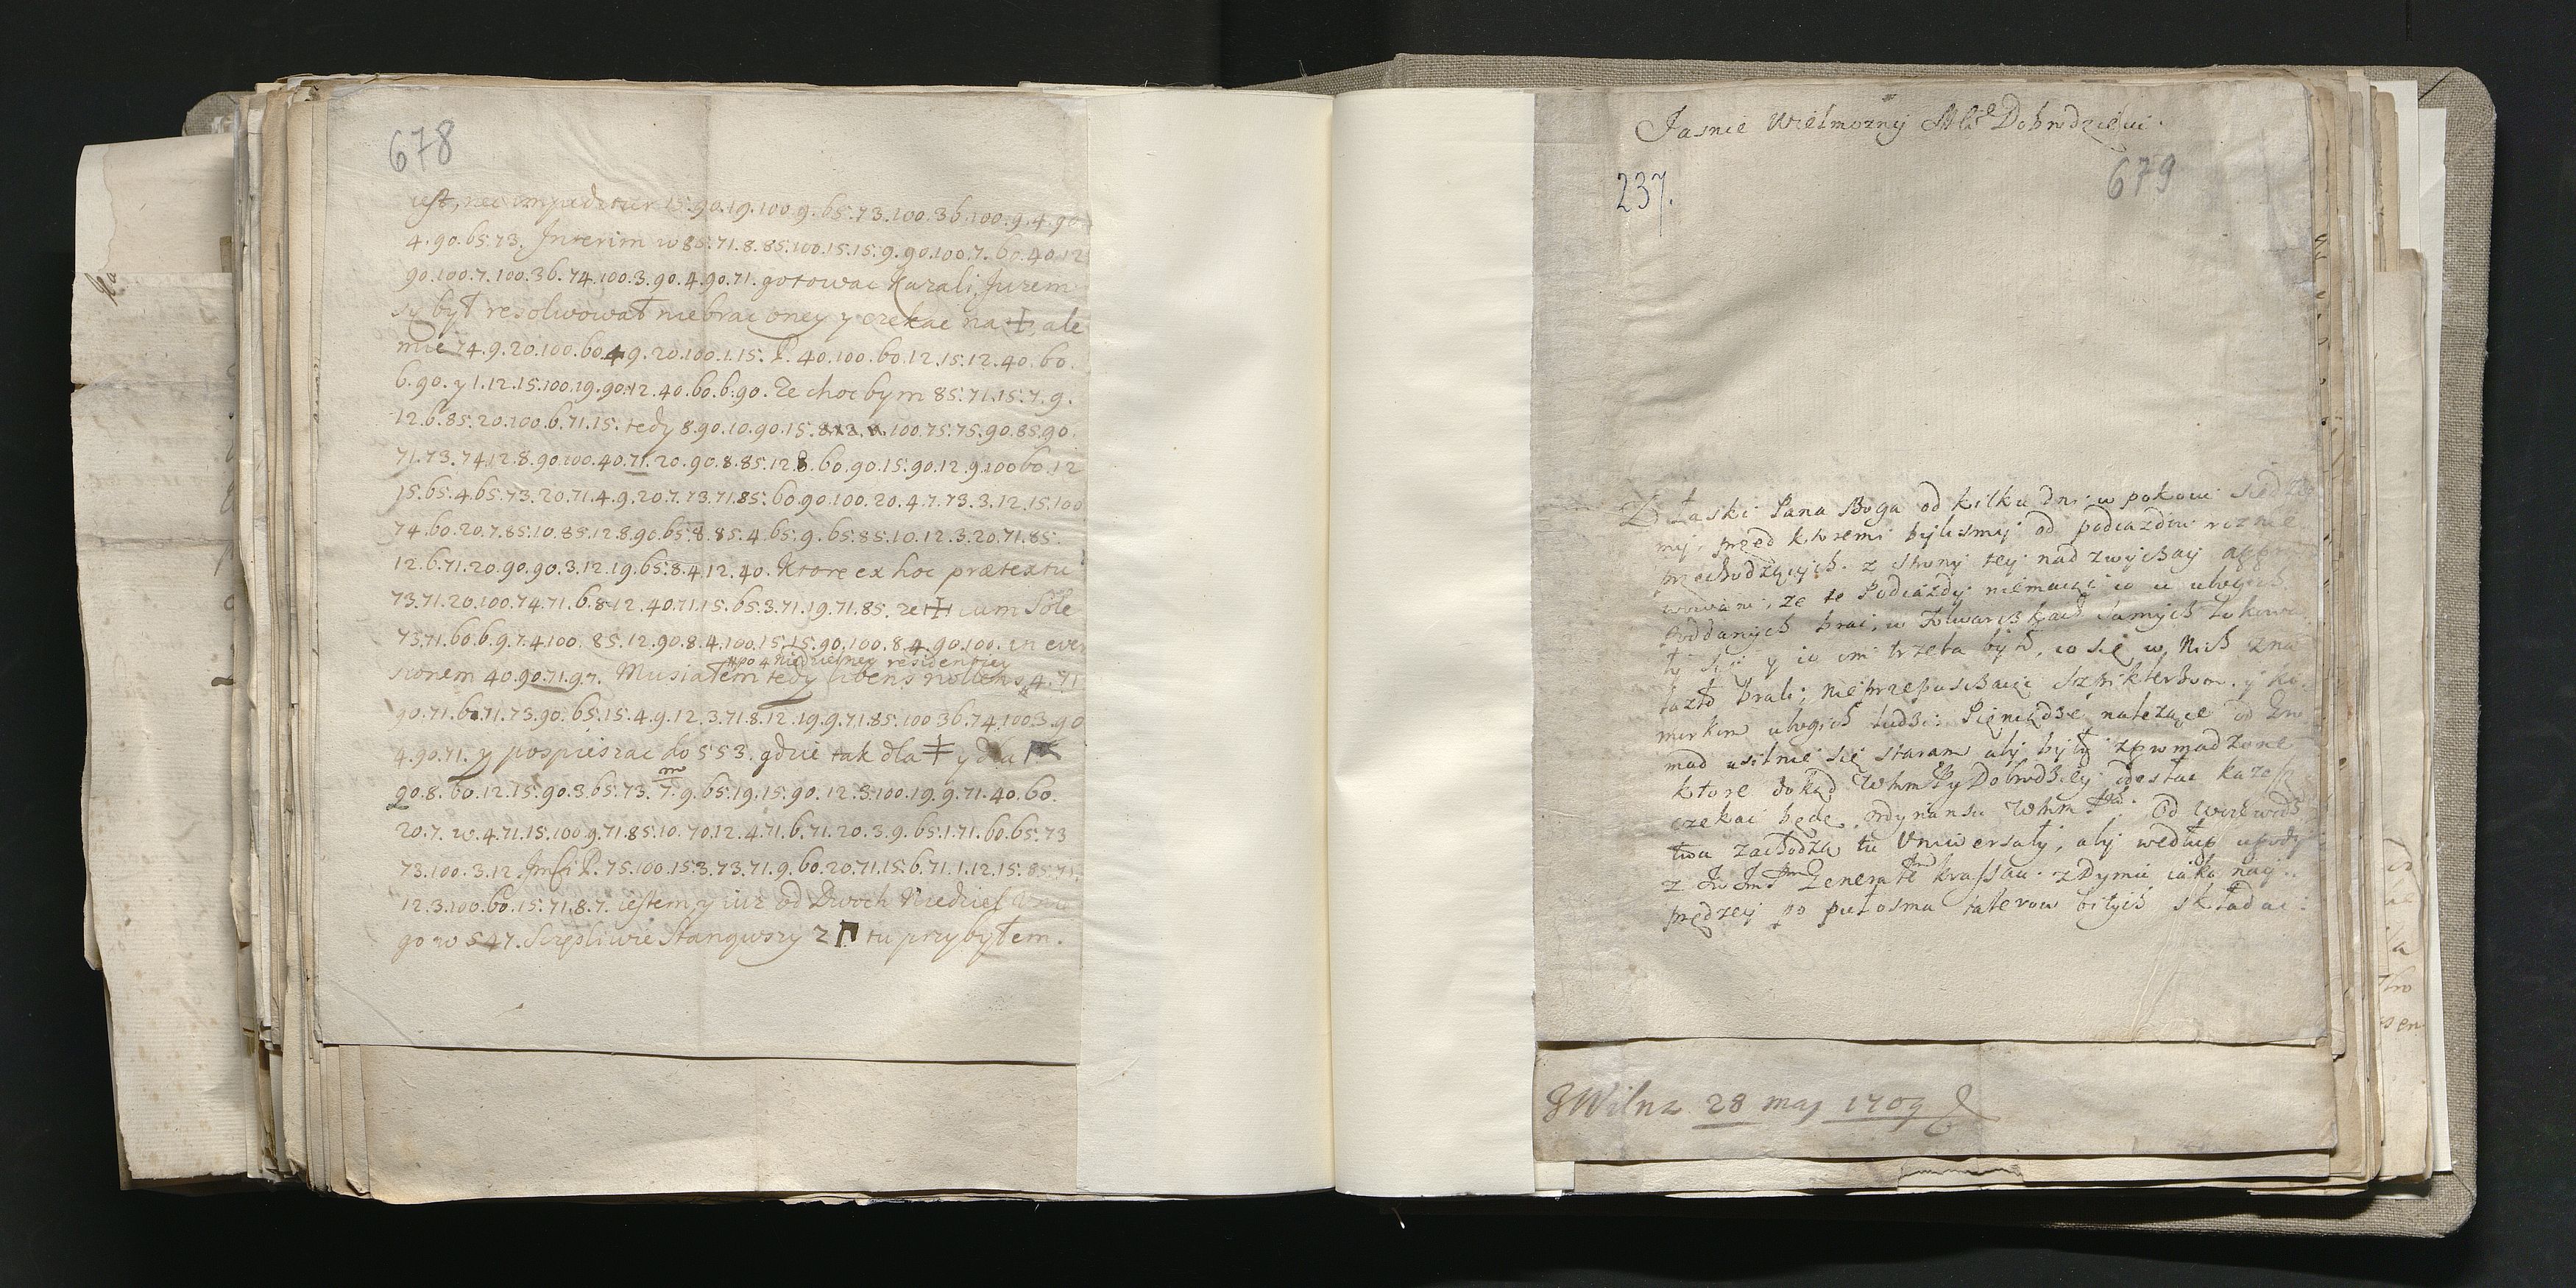 678
iest, nec impeditur 15.90.19.100.9.65.73.100.36.100.9.4.90
4.90.65.73. Interim w 85.71.8.85.100.15.15.9.90.100.7.60.40.12
90.100.7.100.36.74.100.3.90.4.90.71. gotowac kazali, Jurem
się był resolwował niebrac oney y czekac na ‡, ale
mie 74.9.20.100.60.49.20.100.1.15. P. 40.100.60.12.15.12.40.60.
6.90. y 1.12.15.100.19.90.12.40.60.6.90. Ze choc bym 85.71.15.7.9.
12.6.85.20.100.6.71.15. tedy 8.90.10.90.15. 100.75.75.90.85.90.
71.73.74.12.8.90.100.40.71.20.90.8.85.12.8.60.90.15.90.12.9.100.60.12
15.65.4.65.73.20.71.4.9.20.7.73.71.85.60.90.100.20.4.7.73.3.12.15.100
74.60.20.7.85.10.85.12.8.90.65.8.85.4.65.9.65.85.10.12.3.20.71.85.
12.6.71.20.90.90.3.12.19.65.8.4.12.40. Ktore ex hoc prætextu
73.71.20.100.74.71.6.8.12.40.71.15.65.3.71.19.71.85. ze ‡ cum Sole
73.71.60.6.9.7.4.100. 85.12.90.8.4.100.15.15.90.100.8.4.90.100. in ever
sionem 40.90.71.97. Musiałem tedy libens nollens 4.71
po 4 niedzielney residentiey
90.71.60.71.73.90.65.15.4.9.12.3.71.8.12.19.9.71.85.100.36.74.100.3.90
4.90.71. y pospieszac do 553. gdzie tak dla ‡ y dla
90.8.60.12.15.90.3.65.73. 7.9.65.19.15.90.12.3.100.19.9.71.40.60.
20.7. w. 4.71.15.100.9.71.85.10.70.12.4.71.6.71.20.3.9.65.1.71.60.65.73
73.100.3.12. Jmći P. 75.100.15.3.73.71.9.60.20.71.15.6.71.1.12.15.85.71.
12.3.100.60.15.71.8.7. iestem y iuz od Dwoch Niedziel
go w 547. Szczesliwie Stangwszy z tu przybyłem.
Jasnie Wielmozny Mći Dobrodzieiu.
679
237.
Z Łaski Pana Boga od kilku dni w pokoiu siedze
my, przed ktoremi bylismy od podiazdow roznie
przechodzących. z strony tey nadzwyczay
wowani, ze te Podiazdy niemaiąc co u ubogich
Poddanych brac, w Folwarskach samych
ły się y co im trzeba było, co się w Nich zna
lazło brali; nieprzepuszczaiąc y ko.
morkom ubogich ludzi: Pieniądze nalezące od Gro
mad usilnie się staram aby były zgromadzone
ktore dokąd Whm Pan Dobrodziey odesłac kazesz
czekac będe ordynansu Whm Pana. Od woiewodz
twa zachodzą tu Vniwersały, aby według ugody
z Jw Jm Panem Generałem Krassau. z Dymu iako nay
prędzey po puł osma talerow bitych składac:
Wilna 28 maj 1709